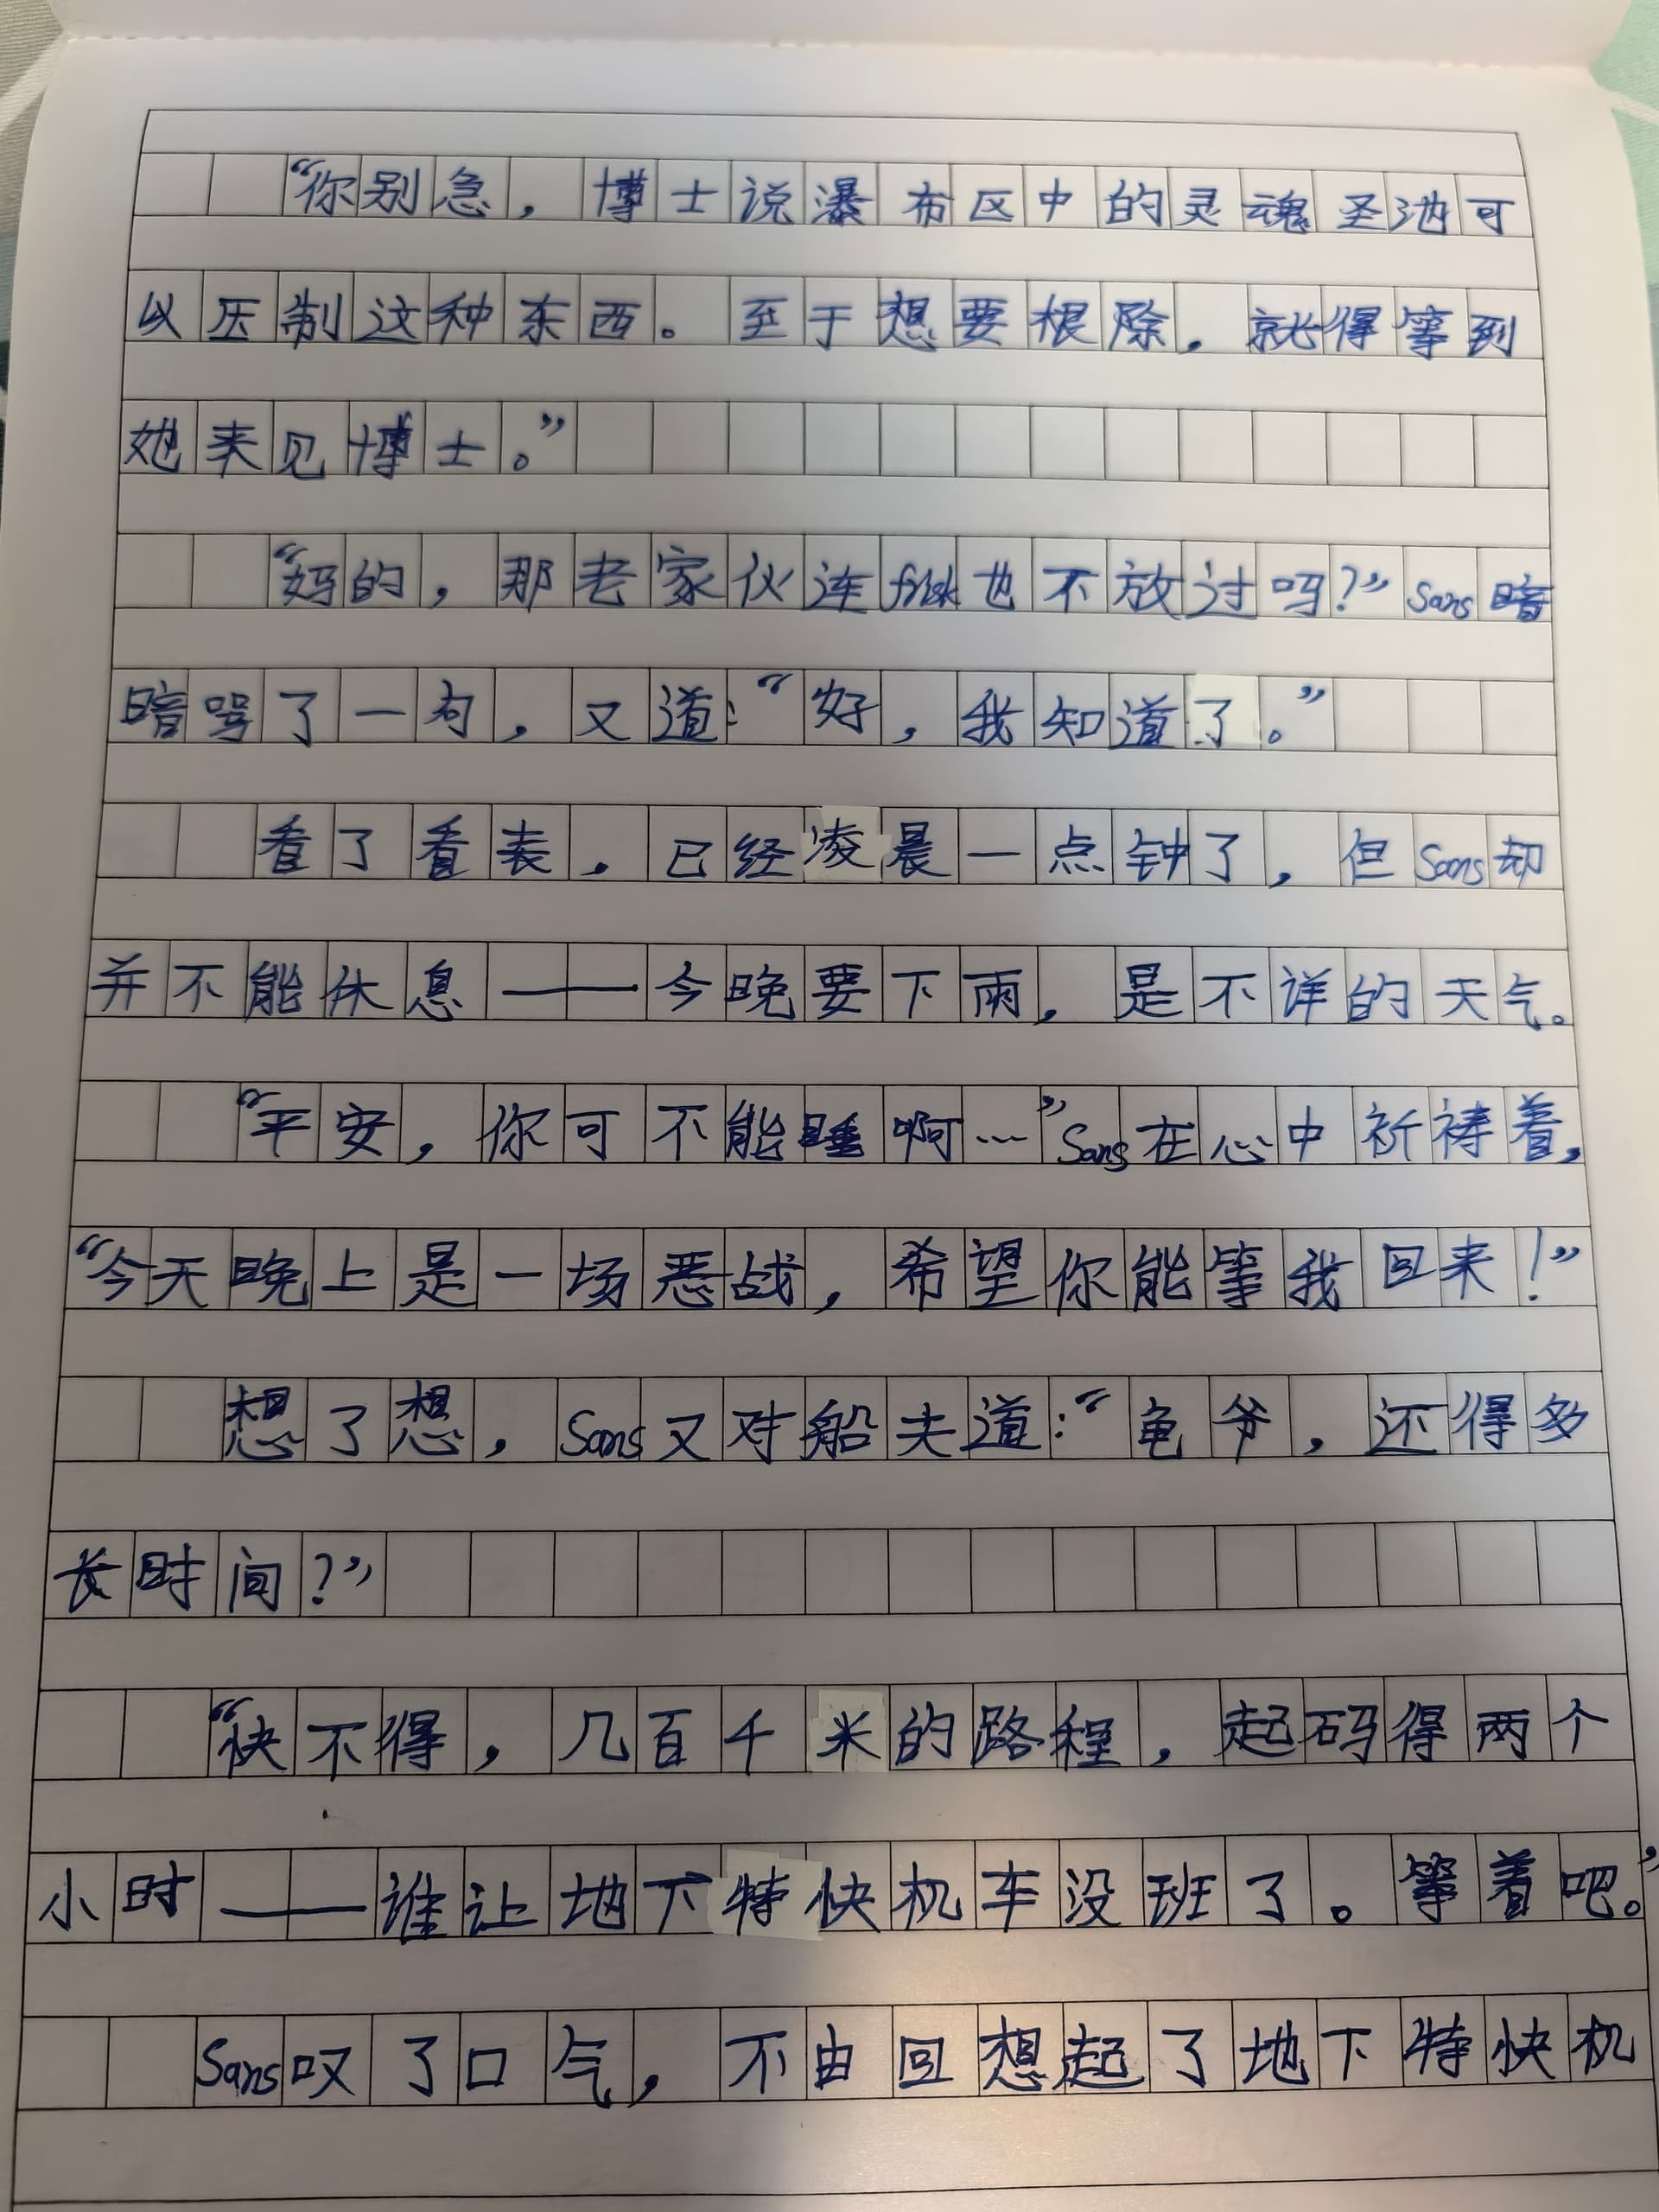 “你别急，博士说瀑布区中的灵魂圣池可
以压制这种东西。至于想要根除，就得等到
她来见博士。”
“妈的，那老家伙连frisk也不放过吗？”Sans暗
暗骂了一句，又道：“好，我知道了。”
看了看表，已经凌晨一点钟了，但Sans却
并不能休息——今晚要下雨，是不详的天气。
“平安，你可不能睡啊……”Sans在心中祈祷着，
“今天晚上是一场恶战，希望你能等我回来！”
想了想，Sans又对船夫道：“龟爷，还得多
长时间？”
“快不得，几百千米的路程，起码得两个
小时——谁让地下特快机车没班了。等着吧。”
Sans叹了口气，不由回想起了地下特快机